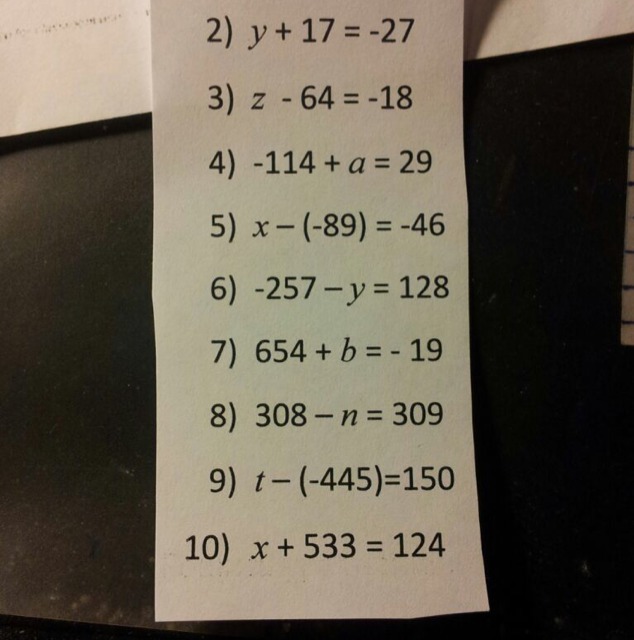 2) y + 17 = -27
3) z - 64 = -18
4) -114 + a = 29
5) x – (-89) = -46
6) -257 – y = 128
7) 654 + b = - 19
8) 308 – n = 309
9) t – (-445)=150
10) x + 533 = 124